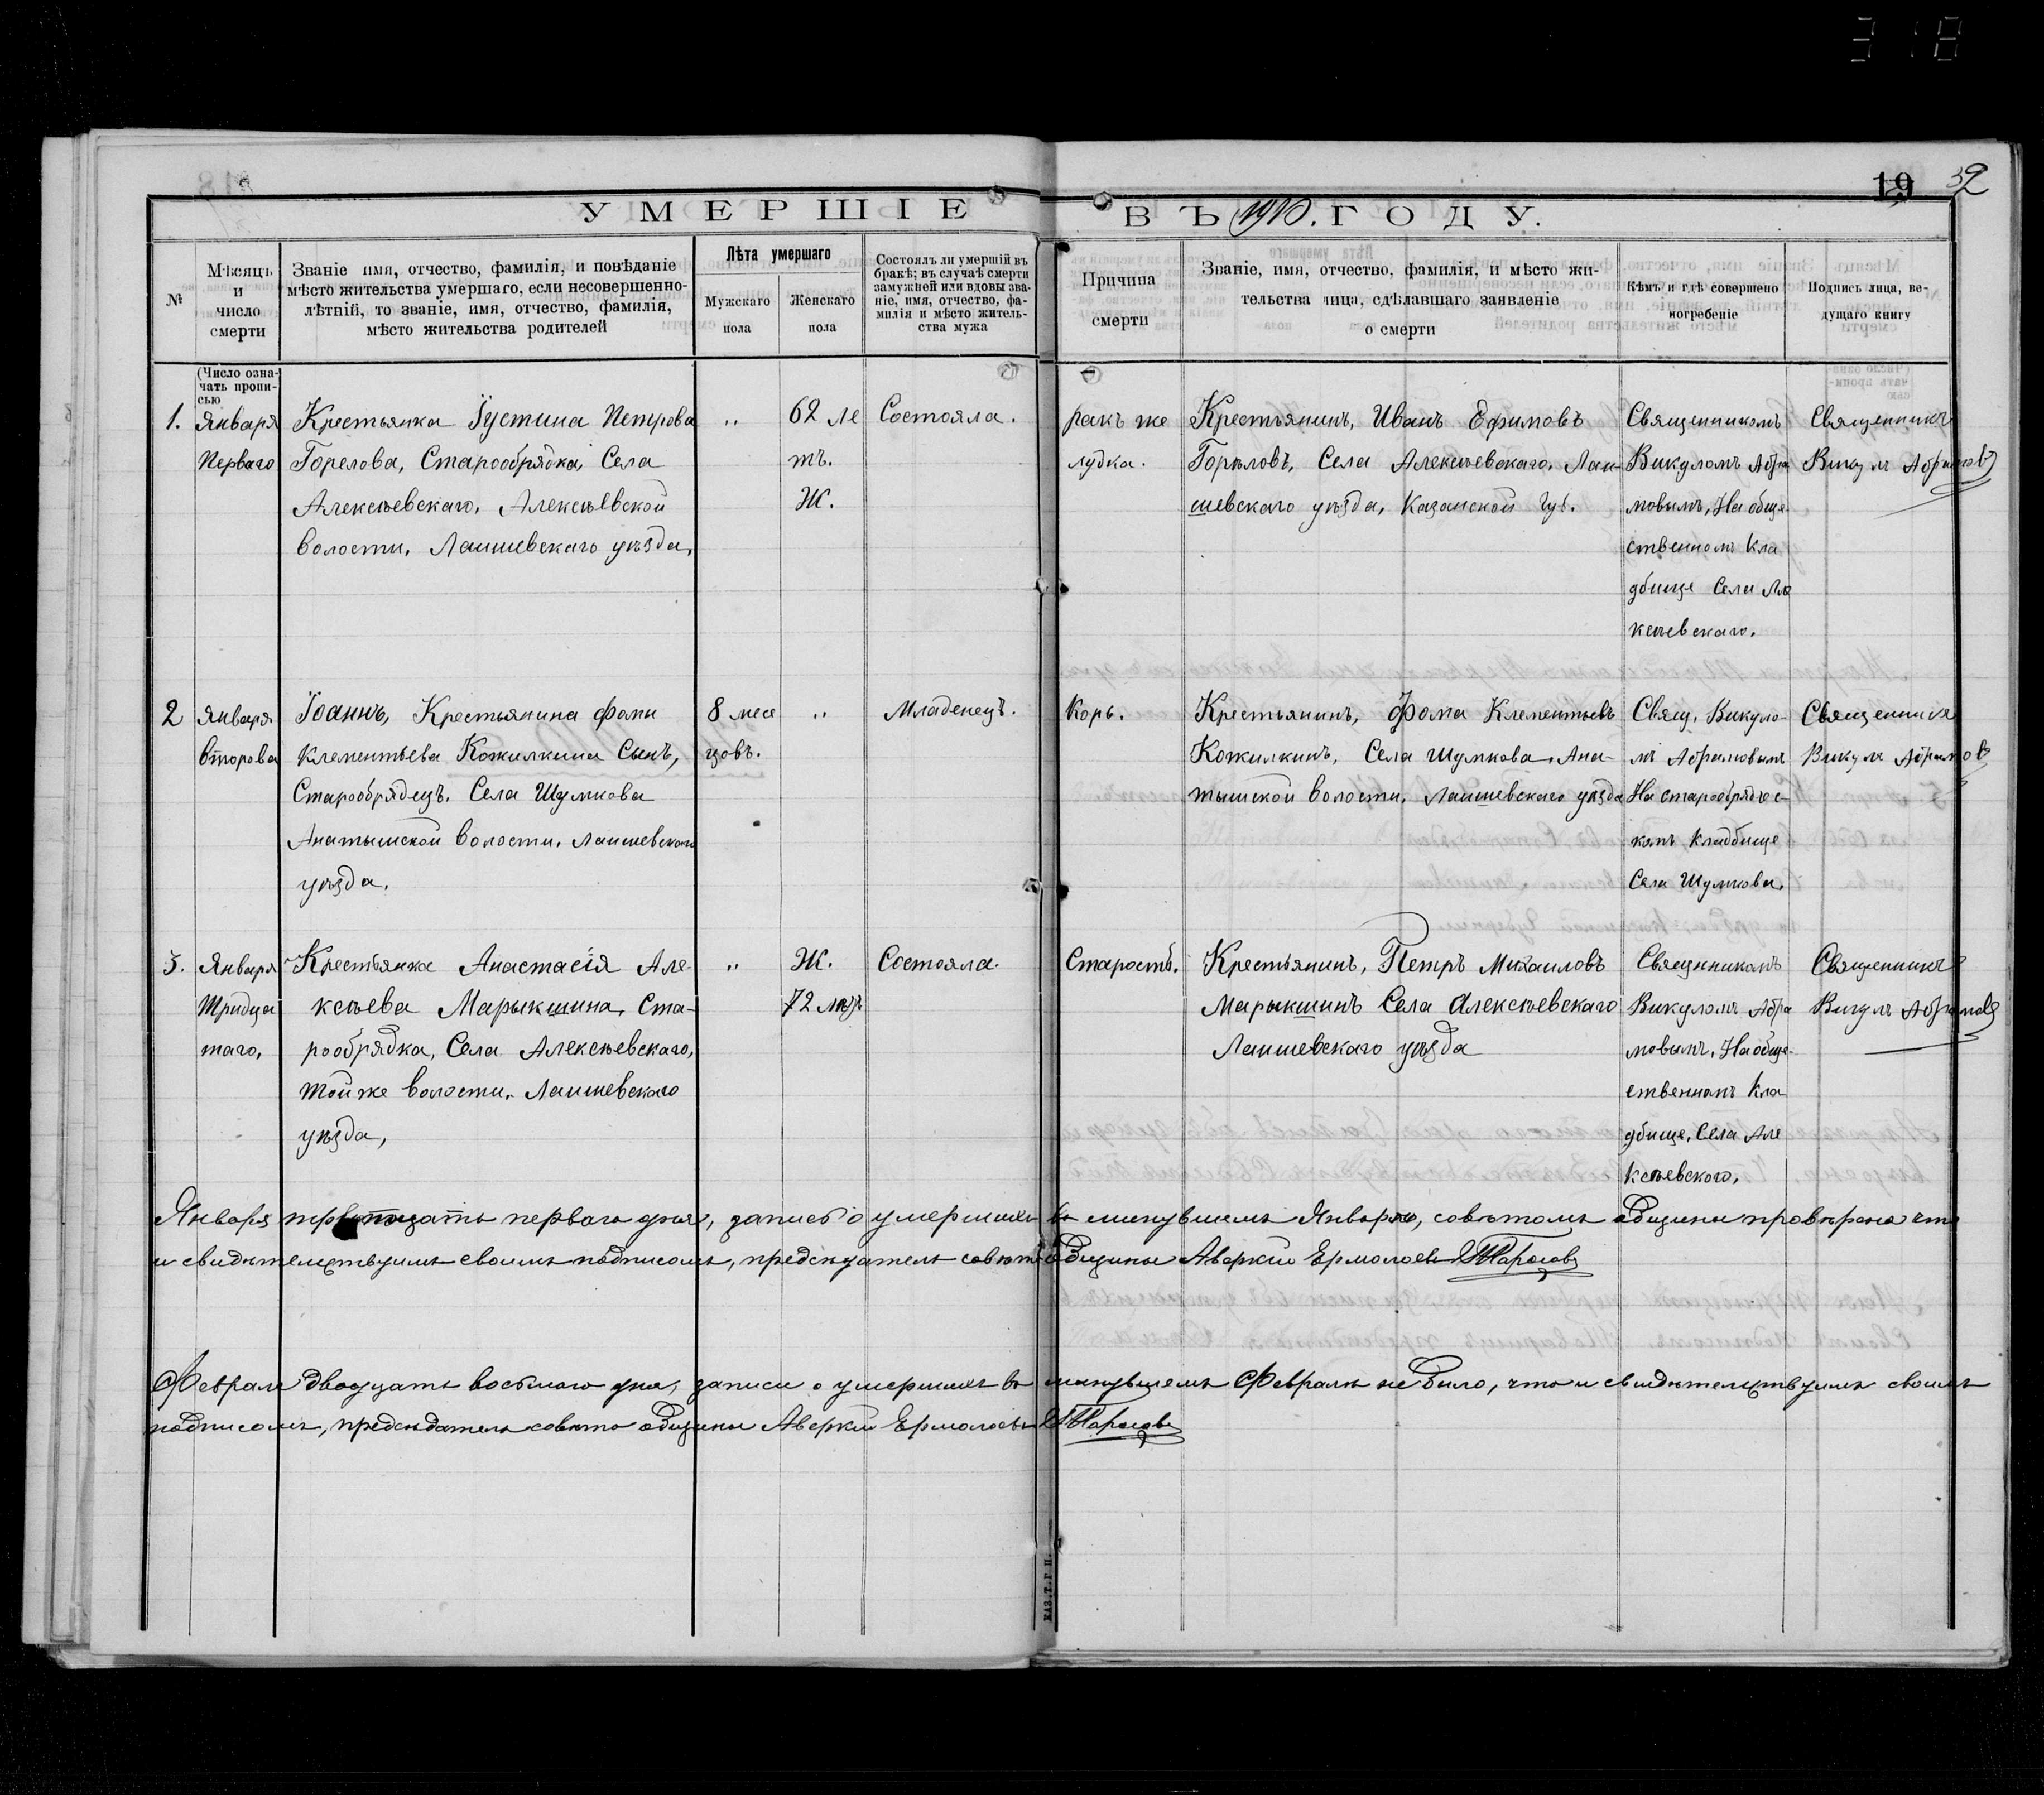 318
19 32
УМЕРШІЕ ВЪ 1910. ГОДУ.
№
Мѣсяцъ и число смерти
Званіе имя, отчество, фамилія, и повѣданіе
мѣсто жительства умершаго, если несовершенно-
лѣтній, то званіе, имя, отчество, фамилія,
мѣсто жительства родителей
Лѣта умершаго
Мужскаго пола
Женскаго пола
Состоялъ ли умершій въ
бракѣ; въ случаѣ смерти
замужней или вдовы зва-
ніе, имя, отчество, фа-
милія и мѣсто житель-
ства мужа
Причина
смерти
Званіе, имя, отчество, фамилія, и мѣсто жи-
тельства лица, сдѣлавшаго заявленіе
о смерти
Кѣмъ и гдѣ совершено
погребеніе
Подпись лица, ве-
дущаго книгу
(Число озна-
чать пропи-
сью
1.
Января
Перваго
Крестьянка Іустина Петрова
Горелова, Старообрядка, Села
Алексѣевскаго, Алексѣевской
волости, Лаишевскаго уѣзда,
"
62 ле
тъ.
Ж.
Состояла.
ракъ же
лудка.
Крестьянинъ, Иванъ Ефимовъ
Горѣловъ, Села Алексѣевскаго, Лаи-
шевскаго уѣзда, Казанской Губ.
Священникомъ
Викуломъ Абра
мовымъ, На обще-
ственномъ Кла
дбище Села Але
ксѣевскаго.
Священникъ
Викулъ Абрамовъ
2
Января
второва
Іоаннъ, Крестьянина Фомы
Клементьева Кожилкина Сынъ,
Старообрядецъ. Села Шумкова
Анатышской волости, Лаишевскаго
уѣзда.
8 месе
цовъ.
"
Младенецъ.
Корь.
Крестьянинъ, Фома Клементьевъ
Кожилкинъ, Села Шумкова, Ана-
тышской волости, Лаишевскаго уѣзда
Свящ. Викуло-
мъ Абрамовымъ
На старообрядчес-
комъ Кладбище
Села Шумкова.
Священникъ
Викулъ Абрамовъ
3.
Января
Тридца
таго.
Крестьянка Анастасія Але-
ксѣева Марыкшина, Ста-
рообрядка, Села Алексѣевскаго,
той же волости, Лаишевскаго
уѣзда,
"
Ж.
72 лѣтъ
Состояла.
Старость.
Крестьянинъ, Петръ Михаиловъ
Марыкшинъ Села Алексѣевскаго
Лаишевскаго уѣзда
Священникомъ
Викуломъ Абра
мовымъ, На обще-
ственномъ Кла
дбище, Села Але
ксѣевскаго.
Священникъ
Викулъ Абрамовъ
Января тритцать перваго дня, запись о умершихъ въ минувшемъ Январѣ, совѣтомъ общины провѣрена что
и свидѣтельствуимъ своимъ подписомъ, председатель совѣта общины Аверкій Ермолаевъ Тарасовъ
Февраля двадцать восьмого дня, записи о умершихъ въ минувшемъ Февралѣ не было, что и свидѣтельствуимъ своимъ
подписомъ, председатель совѣта общины Аверкій Ермолаевъ Тарасовъ
КАЗ. Т. Г. П.